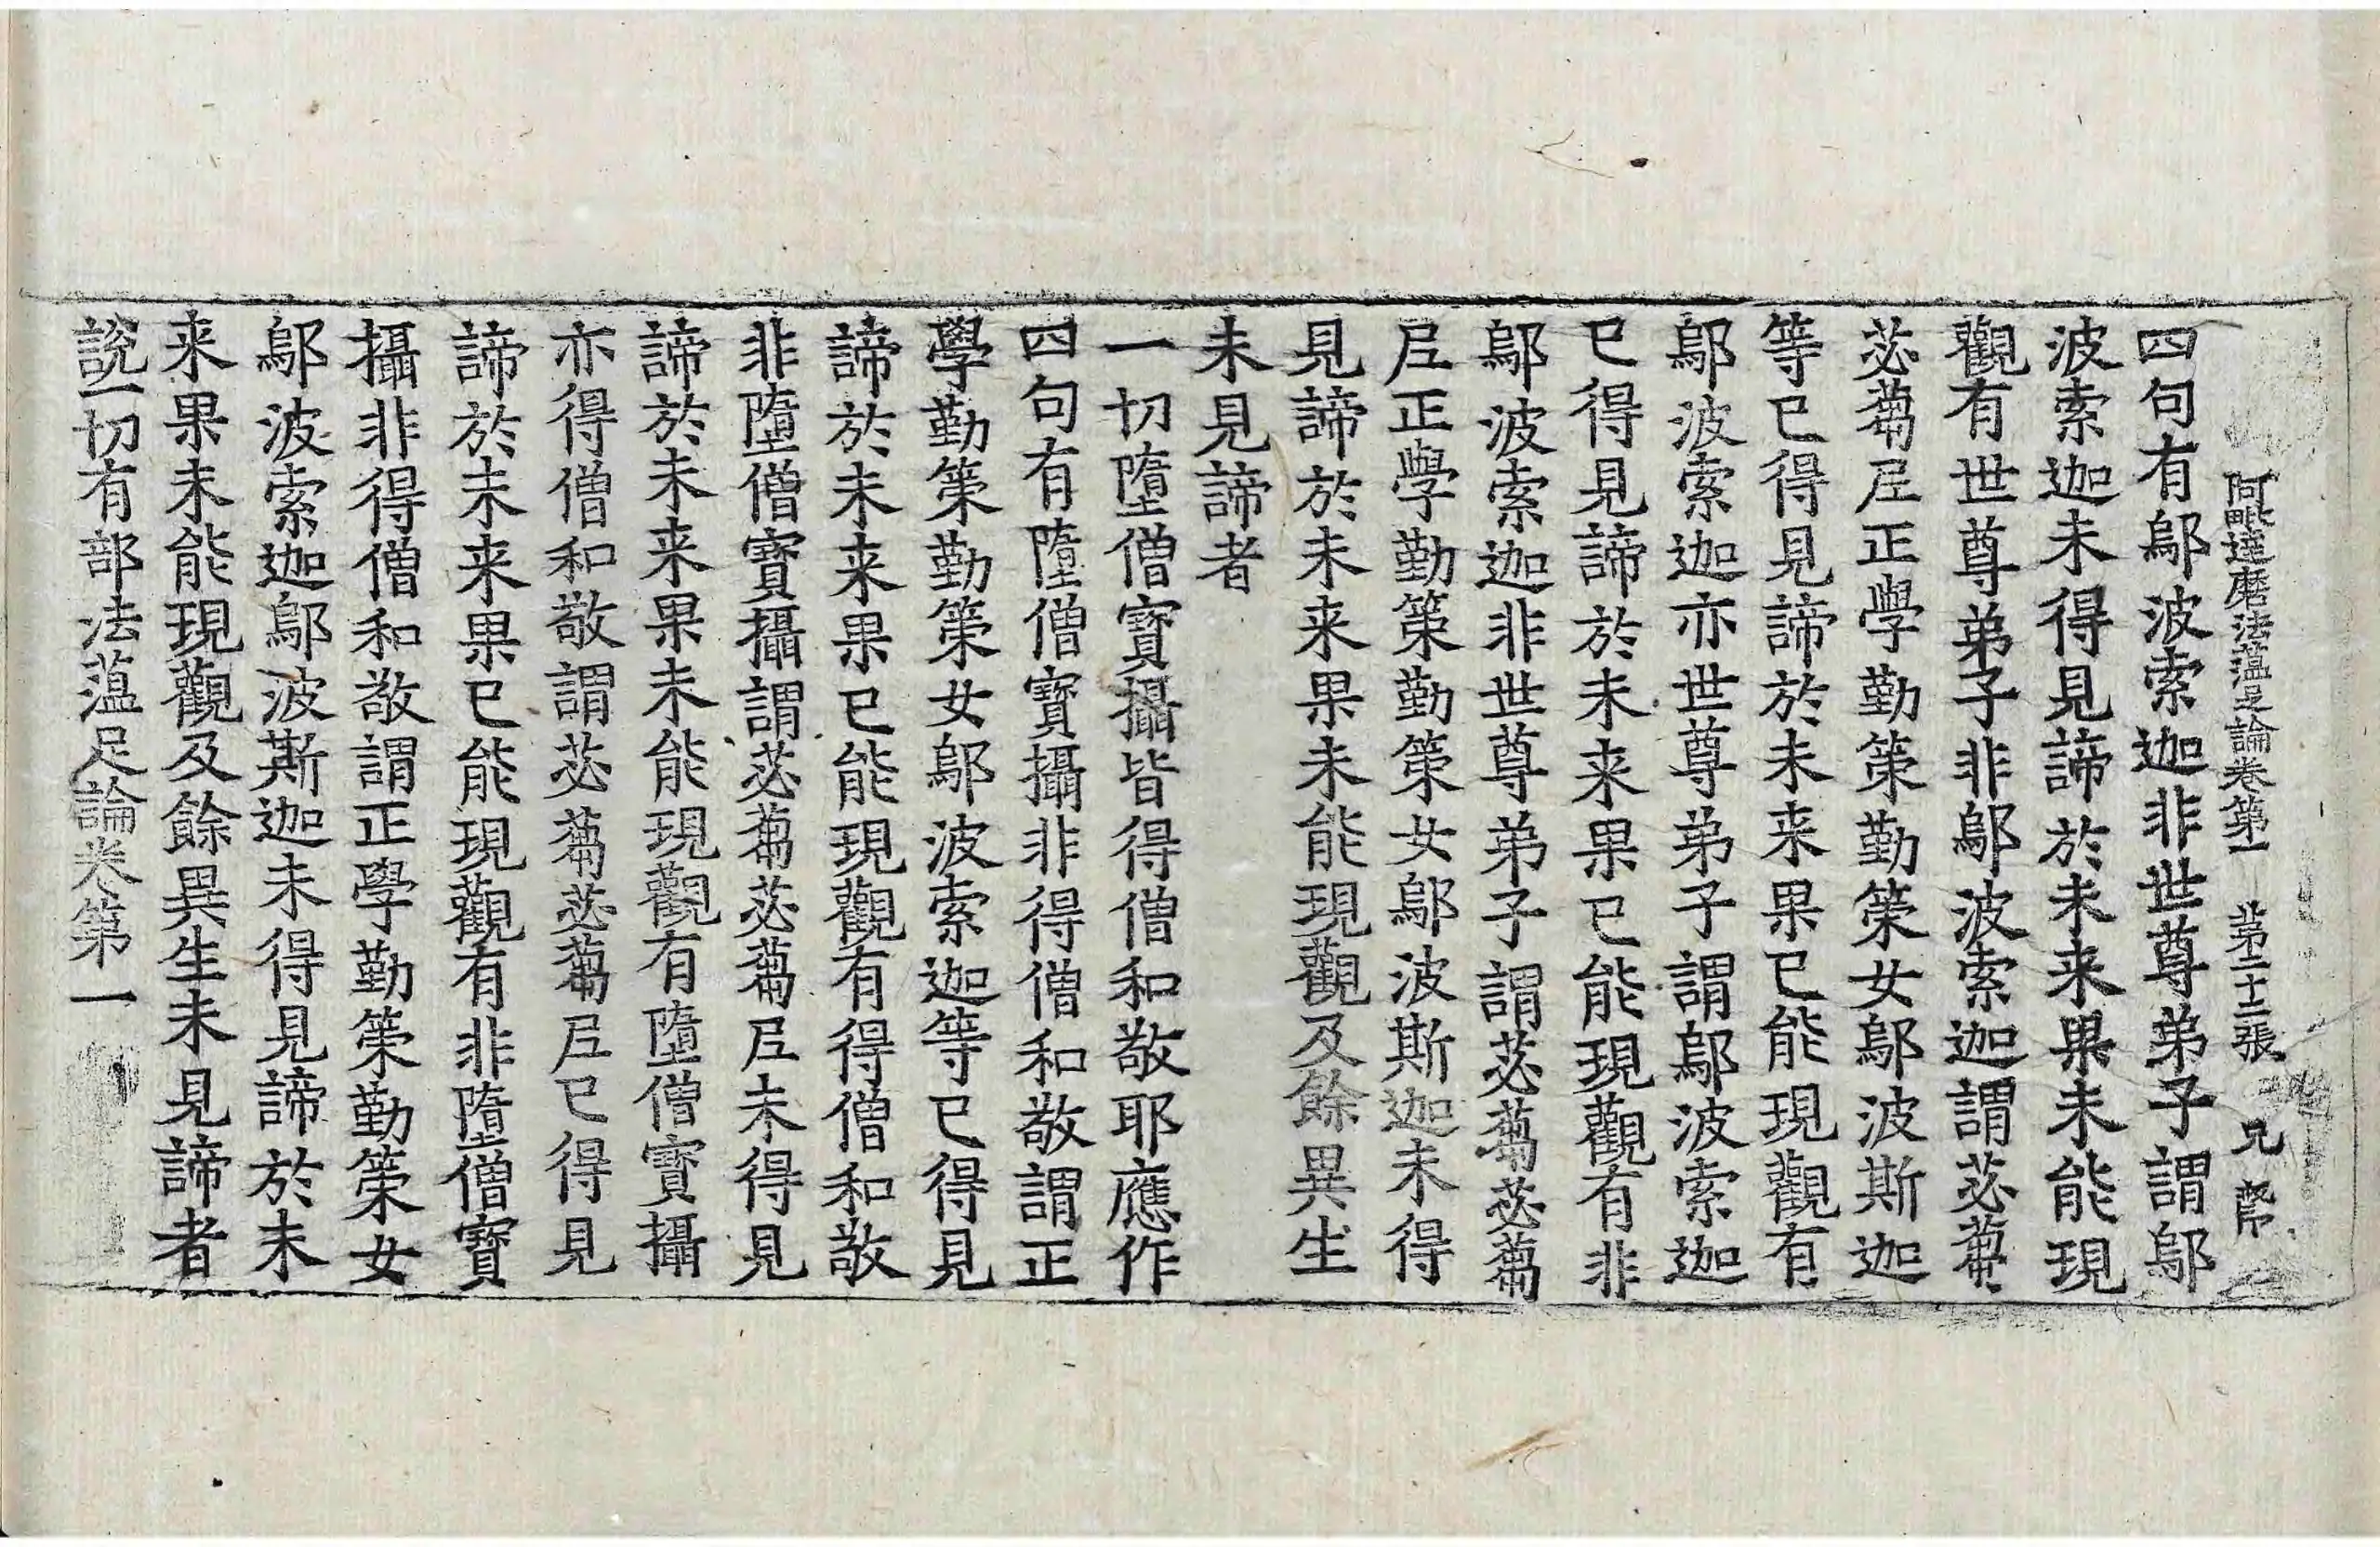 阿毗達磨法蘊足論卷第一 第二十二張 兄
四句有鄔波索迦非世尊弟子謂鄔
波索迦未得見諦於未来果未能現
觀有世尊弟子非鄔波索迦謂苾蒭
苾蒭尼正學勤策勤策女鄔波斯迦
等已得見諦於未来果已能現觀有
鄔波索迦亦世尊弟子謂鄔波索迦
已得見諦於未来果已能現觀有非
鄔波索迦非世尊弟子謂苾蒭苾蒭
尼正學勤策勤策女鄔波斯迦未得
見諦於未来果未能現觀及餘異生
未見諦者
一切墮僧寶攝皆得僧和敬耶應作
四句有墮僧寶攝非得僧和敬謂正
學勤策勤策女鄔波索迦等已得見
諦於未来果已能現觀有得僧和敬
非墮僧寶攝謂苾蒭苾蒭尼未得見
諦於未来果未能現觀有墮僧寶攝
亦得僧和敬謂苾蒭苾蒭尼已得見
諦於未来果已能現觀有非墮僧寶
攝非得僧和敬謂正學勤策勤策女
鄔波索迦鄔波斯迦未得見諦於未
来果未能現觀及餘異生未見諦者
說一切有部法蘊足論卷第一